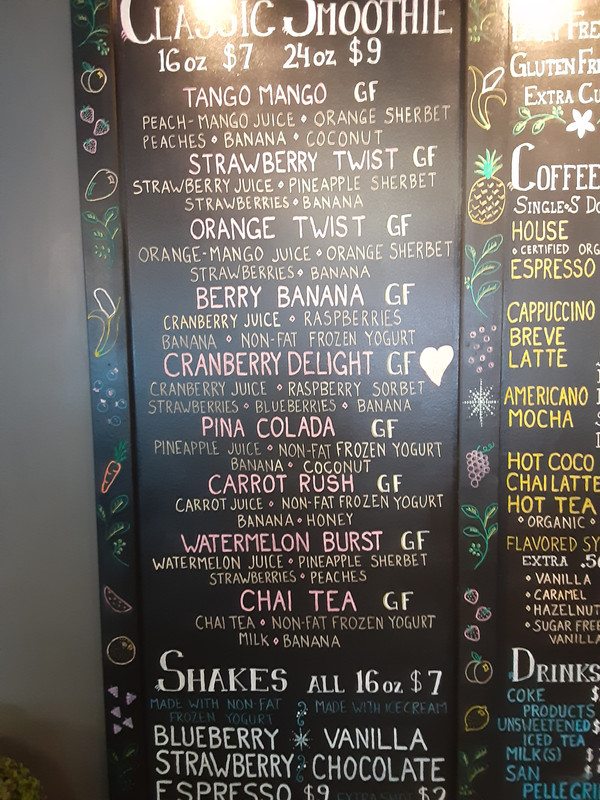 CLASSIC SMOOTHIE
16 oz $7 24 oz $9
TANGO MANGO GF
PEACH-MANGO JUICE • ORANGE SHERBET
PEACHES • BANANA • COCONUT
STRAWBERRY TWIST GF
STRAWBERRY JUICE • PINEAPPLE SHERBET
STRAWBERRIES • BANANA
ORANGE TWIST GF
ORANGE-MANGO JUICE • ORANGE SHERBET
STRAWBERRIES • BANANA
BERRY BANANA GF
CRANBERRY JUICE • RASPBERRIES
BANANA • NON-FAT FROZEN YOGURT
CRANBERRY DELIGHT GF
CRANBERRY JUICE • RASPBERRY SORBET
STRAWBERRIES • BLUEBERRIES • BANANA
PINA COLADA GF
PINEAPPLE JUICE • NON-FAT FROZEN YOGURT
BANANA • COCONUT
CARROT RUSH GF
CARROT JUICE • NON-FAT FROZEN YOGURT
BANANA • HONEY
WATERMELON BURST GF
WATERMELON JUICE • PINEAPPLE SHERBET
STRAWBERRIES • PEACHES
CHAI TEA GF
CHAI TEA • NON-FAT FROZEN YOGURT
MILK • BANANA
SHAKES ALL 16 oz $7
MADE WITH NON-FAT
FROZEN YOGURT
MADE WITH ICE CREAM
BLUEBERRY VANILLA
STRAWBERRY CHOCOLATE
ESPRESSO $9 EXTRA SHOT $2
GLUTEN FR
EXTRA CU
COFFEE
SINGLE•S DO
HOUSE
• CERTIFIED ORG
ESPRESSO
CAPPUCCINO
BREVE
LATTE
AMERICANO
MOCHA
HOT COCO
CHAI LATTE
HOT TEA
• ORGANIC •
FLAVORED SY
EXTRA .50
• VANILLA
• CARAMEL
• HAZELNUT
• SUGAR FREE
VANILLA
DRINKS
COKE $
PRODUCTS
UNSWEETENED $
ICED TEA
MILK(S) $
SAN $
PELLEGRI